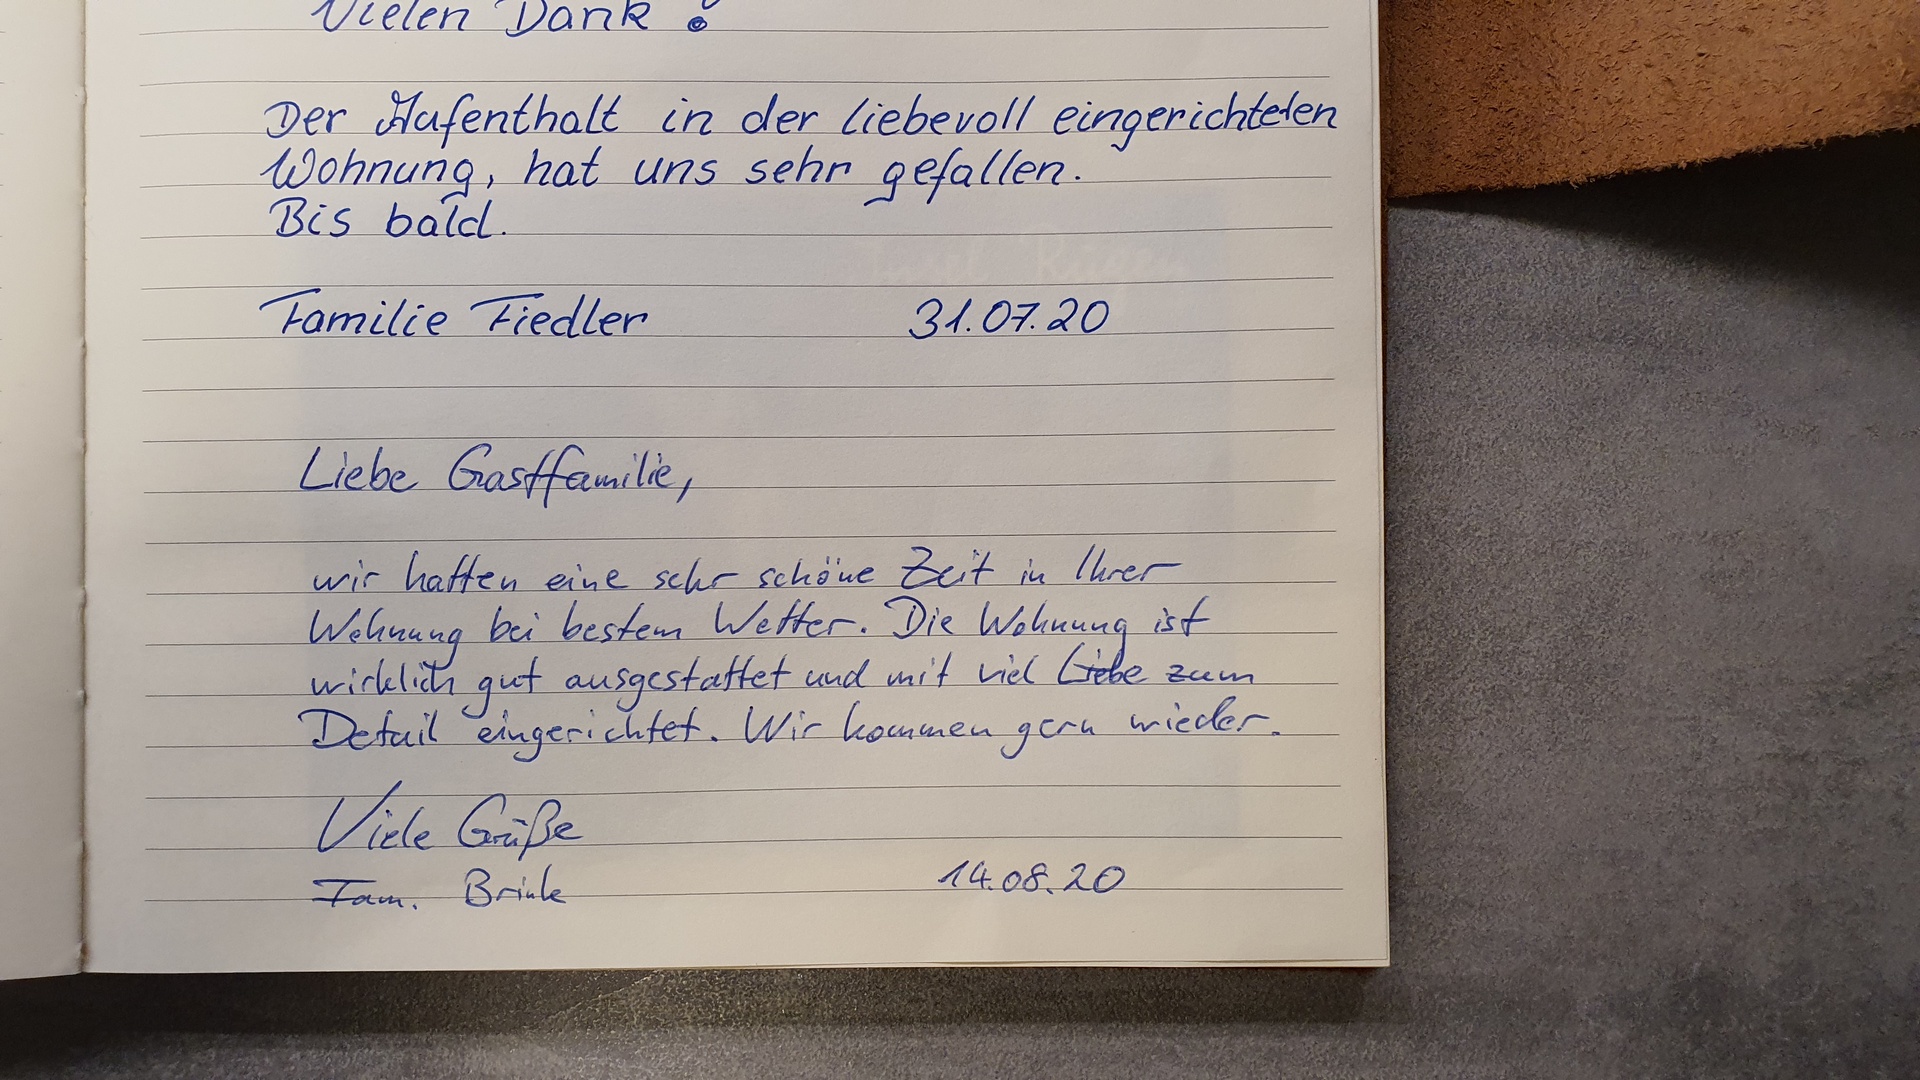 Vielen Dank!
Der Aufenthalt in der liebevoll eingerichteten
Wohnung, hat uns sehr gefallen.
Bis bald.
Familie Fiedler 31.07.20
Liebe Gastfamilie,
wir hatten eine sehr schöne Zeit in Ihrer
Wohnung bei bestem Wetter. Die Wohnung ist
wirklich gut ausgestattet und mit viel Liebe zum
Detail eingerichtet. Wir kommen gern wieder.
Viele Grüße
Fam. Brink 14.08.20